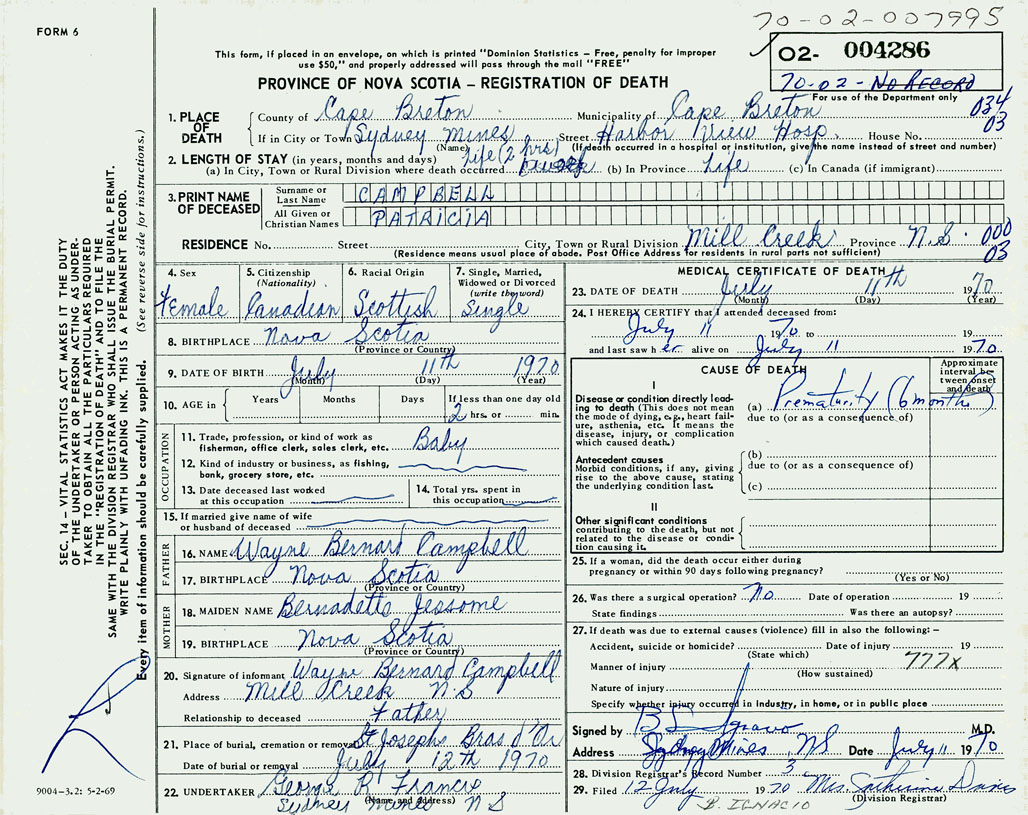 FORM 6
70-02-007995
02- 004286
70-02 - NO RECORD
For use of the Department only
034
03
This form, if placed in an envelope, on which is printed "Dominion Statistics - Free, penalty for improper
use $50," and properly addressed will pass through the mail "FREE"
PROVINCE OF NOVA SCOTIA - REGISTRATION OF DEATH
1. PLACE OF DEATH
County of Cape Breton Municipality of Cape Breton
If in City or Town Sydney Mines Street Harbor View Hosp. House No.
(Name) (If death occurred in a hospital or institution, give the name instead of street and number)
2. LENGTH OF STAY (in years, months and days) Life (2 hrs)
(a) In City, Town or Rural Division where death occurred (b) In Province Life (c) In Canada (if immigrant)
3. PRINT NAME OF DECEASED
Surname or Last Name CAMPBELL
All Given or Christian Names PATRICIA
RESIDENCE No. Street City, Town or Rural Division Mill Creek Province N.S.
000
03
(Residence means usual place of abode. Post Office Address for residents in rural parts not sufficient)
4. Sex Female
5. Citizenship (Nationality) Canadian
6. Racial Origin Scottish
7. Single, Married, Widowed or Divorced (write the word) Single
8. BIRTHPLACE Nova Scotia
(Province or Country)
9. DATE OF BIRTH July 11th 1970
(Month) (Day) (Year)
10. AGE in Years Months Days If less than one day old
2 hrs. or min.
OCCUPATION
11. Trade, profession, or kind of work as
fisherman, office clerk, sales clerk, etc. Baby
12. Kind of industry or business, as fishing,
bank, grocery store, etc.
13. Date deceased last worked
at this occupation
14. Total yrs. spent in
this occupation
15. If married give name of wife
or husband of deceased
FATHER
16. NAME Wayne Bernard Campbell
17. BIRTHPLACE Nova Scotia
(Province or Country)
MOTHER
18. MAIDEN NAME Bernadette Jessome
19. BIRTHPLACE Nova Scotia
(Province or Country)
20. Signature of informant Wayne Bernard Campbell
Address Mill Creek N S
Relationship to deceased Father
21. Place of burial, cremation or removal St Josephs Bras d'Or
Date of burial or removal July 12th 1970
22. UNDERTAKER George R Francis
(Name and Address)
Sydney Mines N S
MEDICAL CERTIFICATE OF DEATH
23. DATE OF DEATH July 11th 1970
(Month) (Day) (Year)
24. I HEREBY CERTIFY that I attended deceased from:
July 11 1970 to 19
and last saw her alive on July 11 1970
CAUSE OF DEATH
Approximate interval between onset and death
I
Disease or condition directly leading to death (This does not mean the mode of dying, e.g., heart failure, asthenia, etc. It means the disease, injury, or complication which caused death.)
(a) Prematurity (6 months)
due to (or as a consequence of)
Antecedent causes
Morbid conditions, if any, giving rise to the above cause, stating the underlying condition last.
(b)
due to (or as a consequence of)
(c)
II
Other significant conditions
contributing to the death, but not related to the disease or condition causing it.
25. If a woman, did the death occur either during
pregnancy or within 90 days following pregnancy?
(Yes or No)
26. Was there a surgical operation? No Date of operation 19
State findings Was there an autopsy?
27. If death was due to external causes (violence) fill in also the following: -
Accident, suicide or homicide? Date of injury 19
(State which)
777x
Manner of injury
(How sustained)
Nature of injury
Specify whether injury occurred in Industry, in home, or in public place
Signed by M.D.
Address Sydney Mines, NS Date July 11 1970
28. Division Registrar's Record Number 3
29. Filed 12 July 1970 Mrs. Catherine Davis
(Division Registrar)
B. IGNACIO
SEC. 14 - VITAL STATISTICS ACT MAKES IT THE DUTY
OF THE UNDERTAKER OR PERSON ACTING AS UNDER-
TAKER TO OBTAIN ALL THE PARTICULARS REQUIRED
IN THE "REGISTRATION OF DEATH" AND TO FILE THE
SAME WITH THE DIVISION REGISTRAR WHO SHALL ISSUE THE BURIAL PERMIT.
WRITE PLAINLY WITH UNFADING INK. THIS IS A PERMANENT RECORD.
Every item of information should be carefully supplied. (See reverse side for instructions.)
9004-3.2: 5-2-69